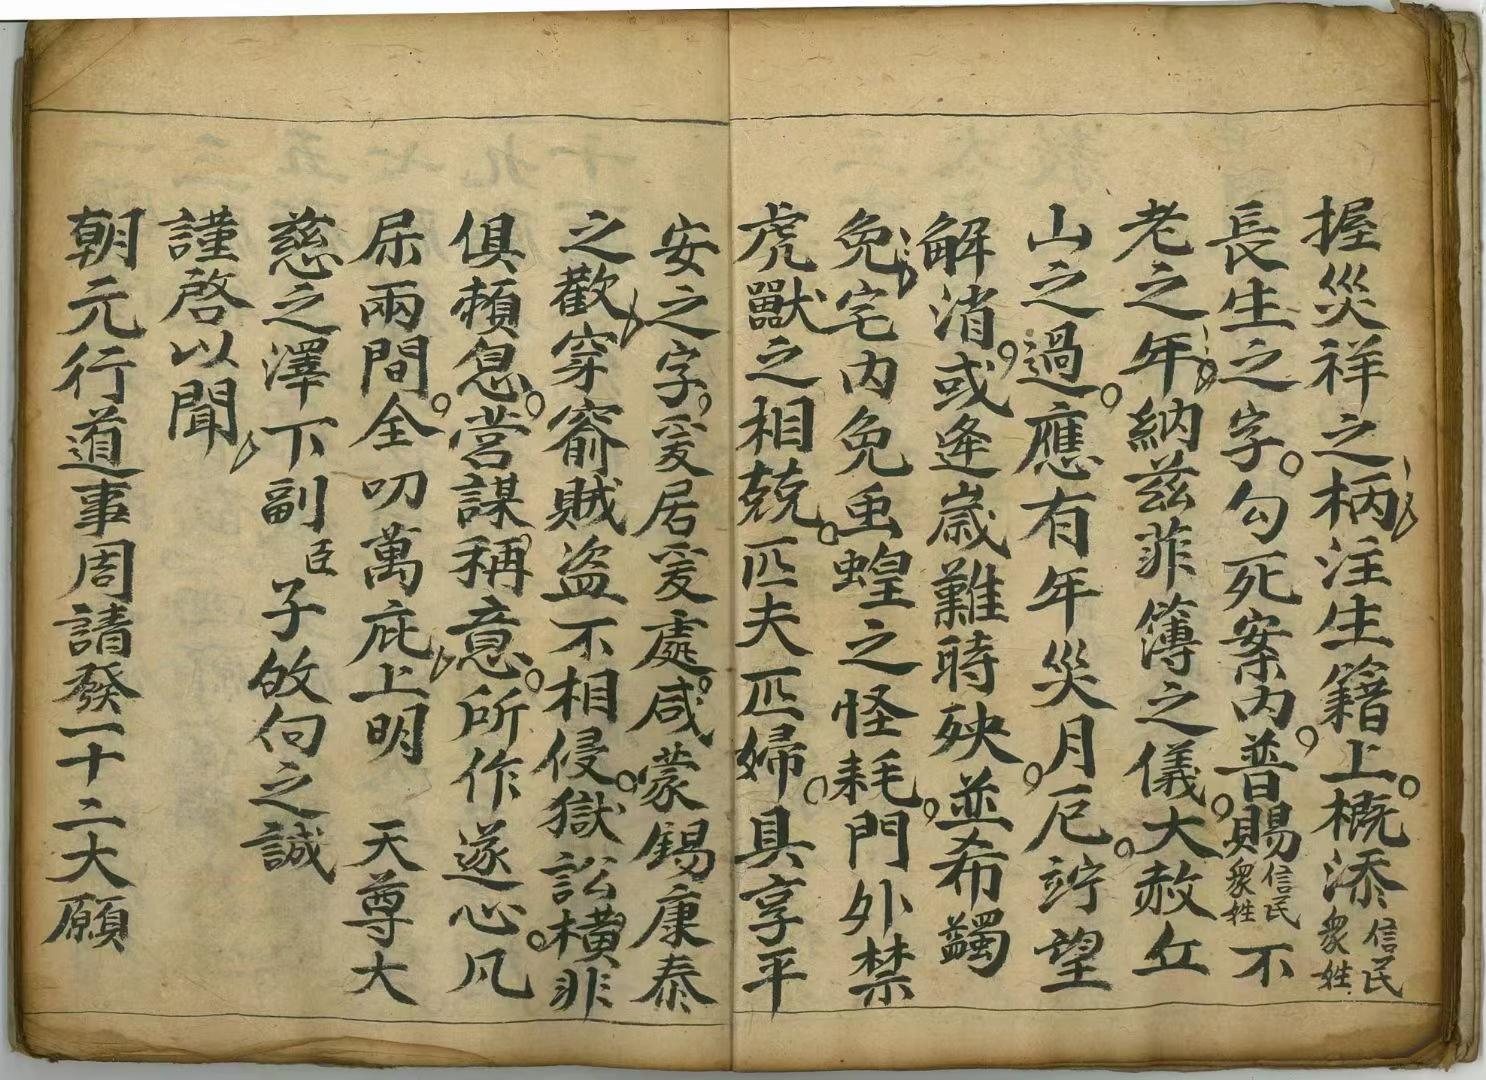 握災祥之柄注生籍上。概添信民眾姓
長生之字。勾死案內。普賜信民眾姓不
老之年納茲菲簿之儀。大赦丘
山之過。應有年災月厄。竚望
解消。或逢歲難時殃。並希蠲
免宅內免䖝蝗之怪耗。門外禁
虎獸之相兢。匹夫匹婦。具享平
安之字。爰居爰處。咸蒙錫康泰
之歡穿窬賊盜不相侵。獄訟橫非
俱賴息。營謀稱意。所作遂心。凡
屎兩間。全叨萬庇上明 天尊大
慈之澤下副臣子攸向之誠
謹啓以聞
朝元行道事周請發一十二大願